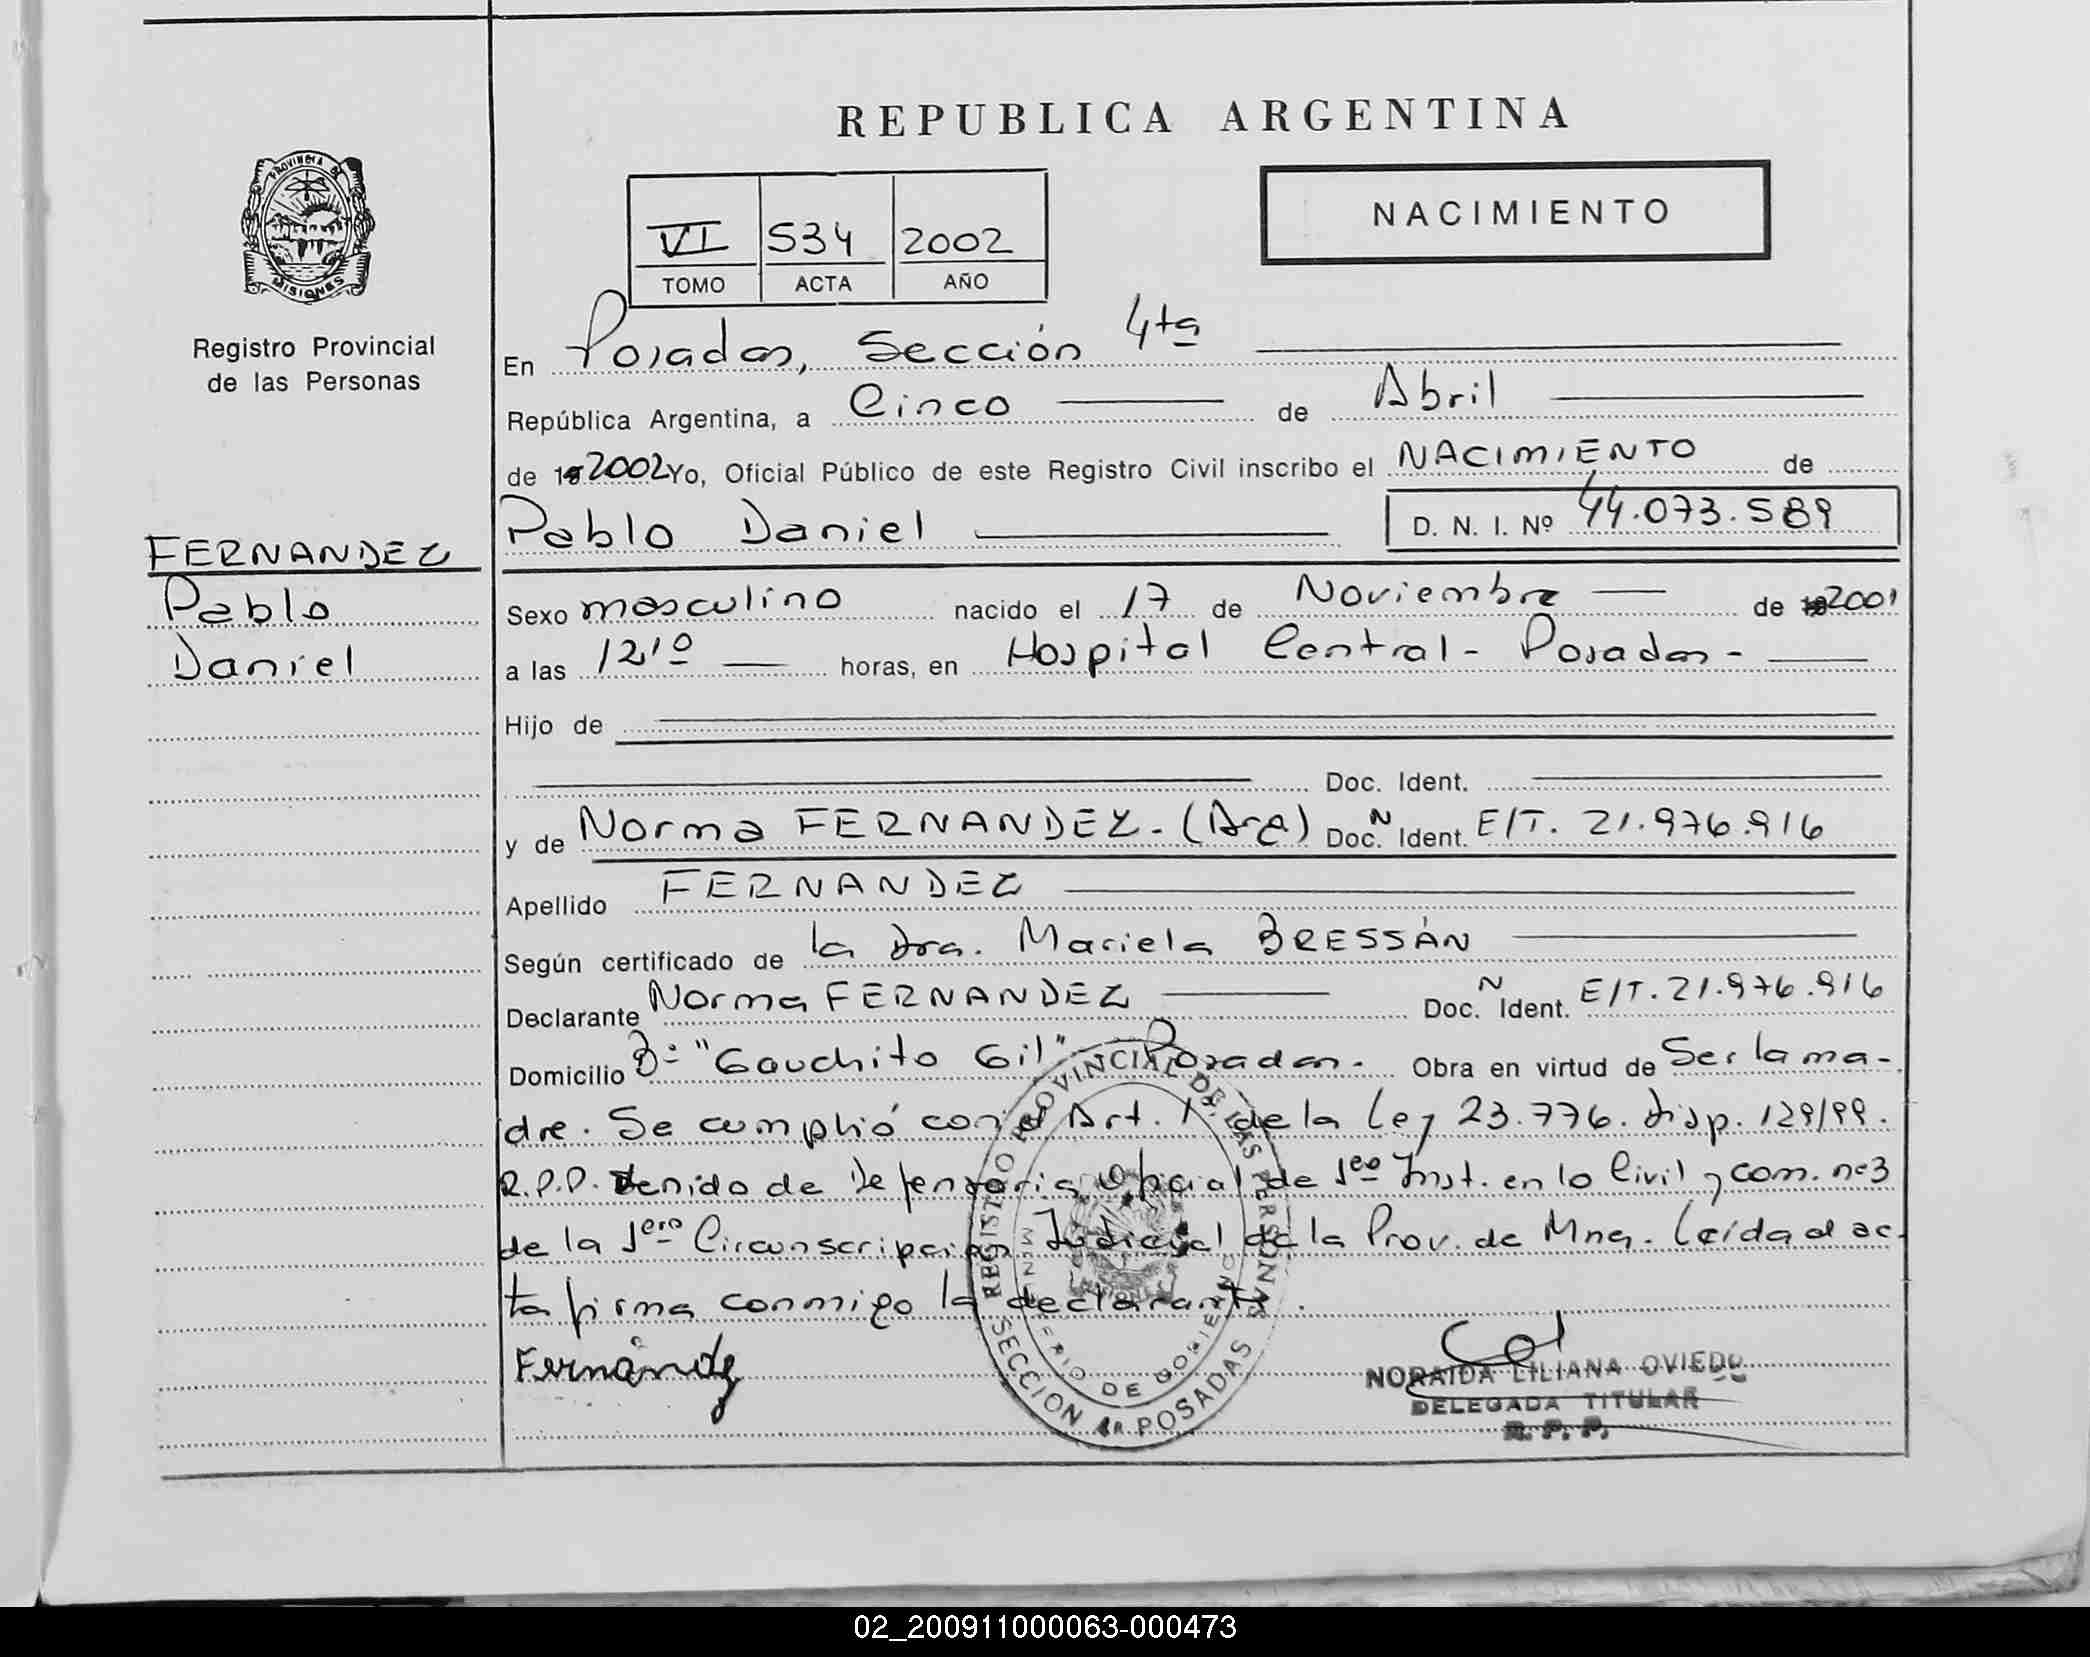 REPUBLICA ARGENTINA
PROVINCIA DE MISIONES
Registro Provincial
de las Personas
VI 534 2002
TOMO ACTA AÑO
NACIMIENTO
En Posadas, Sección 4ta
República Argentina, a Cinco de Abril
de 19 2002 Yo, Oficial Público de este Registro Civil inscribo el NACIMIENTO de
Pablo Daniel D. N. I. Nº 44.073.589
FERNANDEZ
Pablo
Daniel
Sexo masculino nacido el 17 de Noviembre de 19 2001
a las 12,10 horas, en Hospital Central - Posadas -
Hijo de
Doc. Ident.
y de Norma FERNANDEZ. (Arg) Doc. N Ident. E/T. 21.976.916
Apellido FERNANDEZ
Según certificado de la Dra. Mariela BRESSÁN
Declarante Norma FERNANDEZ Doc. N Ident. E/T. 21.976.916
Domicilio Bº "Gauchito Gil" Posadas. Obra en virtud de Ser la ma-
dre. Se cumplió con el Art. 1 de la Ley 23.776. Disp. 129/99.
R.P.P. Venido de Defensoria Oficial de 1era Inst. en lo Civil y com. nº3
de la 1era Circunscripcion Judicial de la Prov. de Mnes. Leída el ac-
ta firma conmigo la declarante.
Fernández
REGISTRO PROVINCIAL DE LAS PERSONAS
MINISTERIO DE GOBIERNO
SECCION 4a POSADAS
NORAIDA LILIANA OVIEDO
DELEGADA TITULAR
R. P. P.
02_200911000063-000473